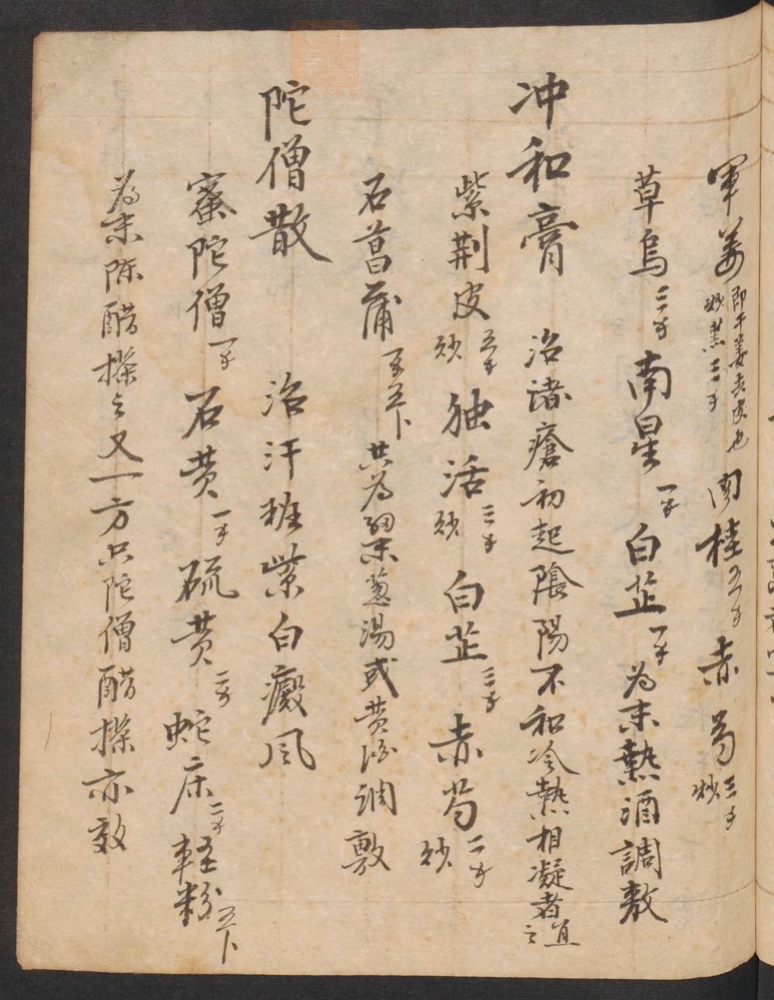 軍姜 即干姜去皮也 炒黑三钱 肉桂五钱 赤芍 三钱 炒
草烏三钱 南星一钱 白芷一钱 为末熱酒調敷
冲和膏 治諸瘡初起陰陽不和冷熱相凝者宜之
紫荆皮 五钱 炒 独活 三钱 炒 白芷三钱 赤芍 二钱 炒
石菖蒲 共为細末葱湯或黄酒调敷
陀僧散 治汗斑紫白癜风
蜜陀僧一钱 石黄一钱 硫黄二钱 蛇床二钱 軽粉五卜
为末陈醋搽之又一方只陀僧醋搽亦效